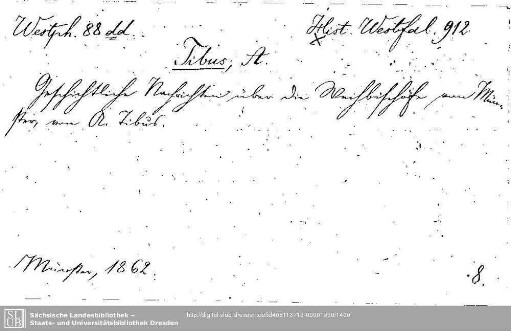 Westph. 88 dd.
Hist. Westfal. 912
Tibus, A.
Geschichtliche Nachrichten über die Weihbischöfe von Mün-
ster, von A. Tibus.
Münster, 1862.
8.
Sächsische Landesbibliothek –
Staats- und Universitätsbibliothek Dresden